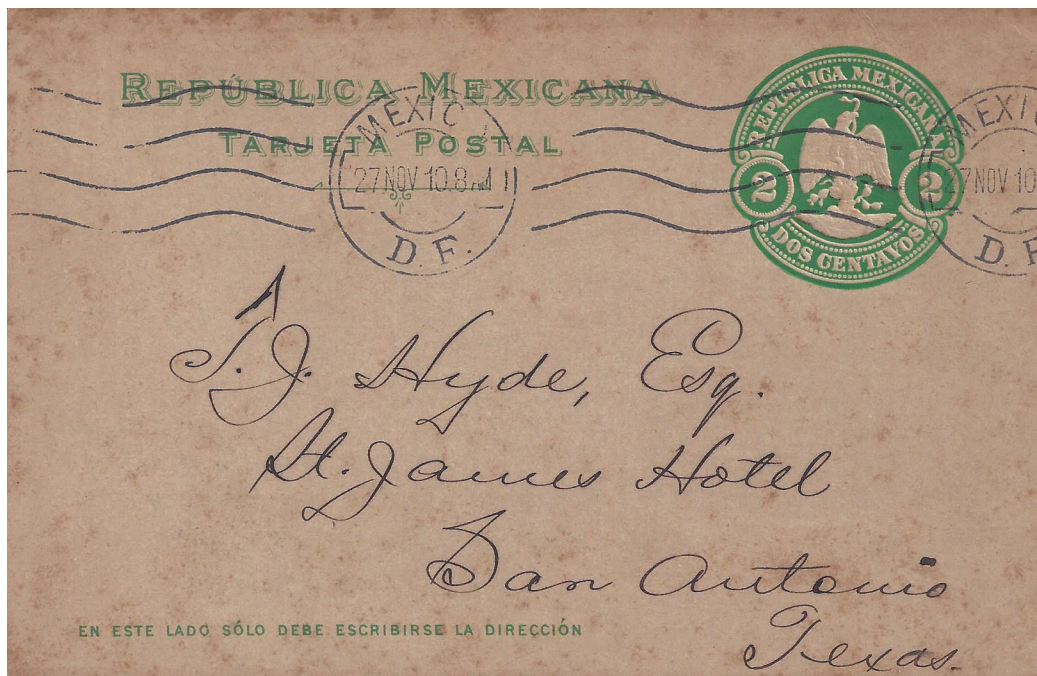 REPÚBLICA MEXICANA
TARJETA POSTAL
MEXIC
27 NOV 10.8 AM
D. F.
REPUBLICA MEXICANA
2 2
DOS CENTAVOS
MEXIC
27 NOV 10
D. F
J. Hyde, Esq.
St. James Hotel
San Antonio
Texas.
EN ESTE LADO SÓLO DEBE ESCRIBIRSE LA DIRECCIÓN